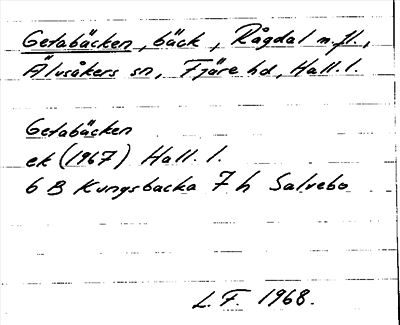 Getabäcken, bäck, Rågdal m.fl.,
Älvsåkers sn, Fjäre hd, Hall. l.
Getabäcken
ek (1967) Hall. l.
6 B Kungsbacka 7 h Salvebo
L. F. 1968.